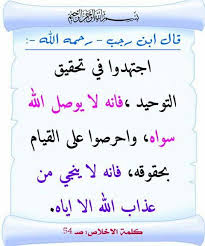 بسم الله الرحمن الرحيم
قال ابن رجب - رحمه الله -:
اجتهدوا في تحقيق
التوحيد ،فانه لا يوصل الله
سواه، واحرصوا على القيام
بحقوقه، فانه لا ينجي من
عذاب الله الا اياه.
كلمة الاخلاص: صـ 54